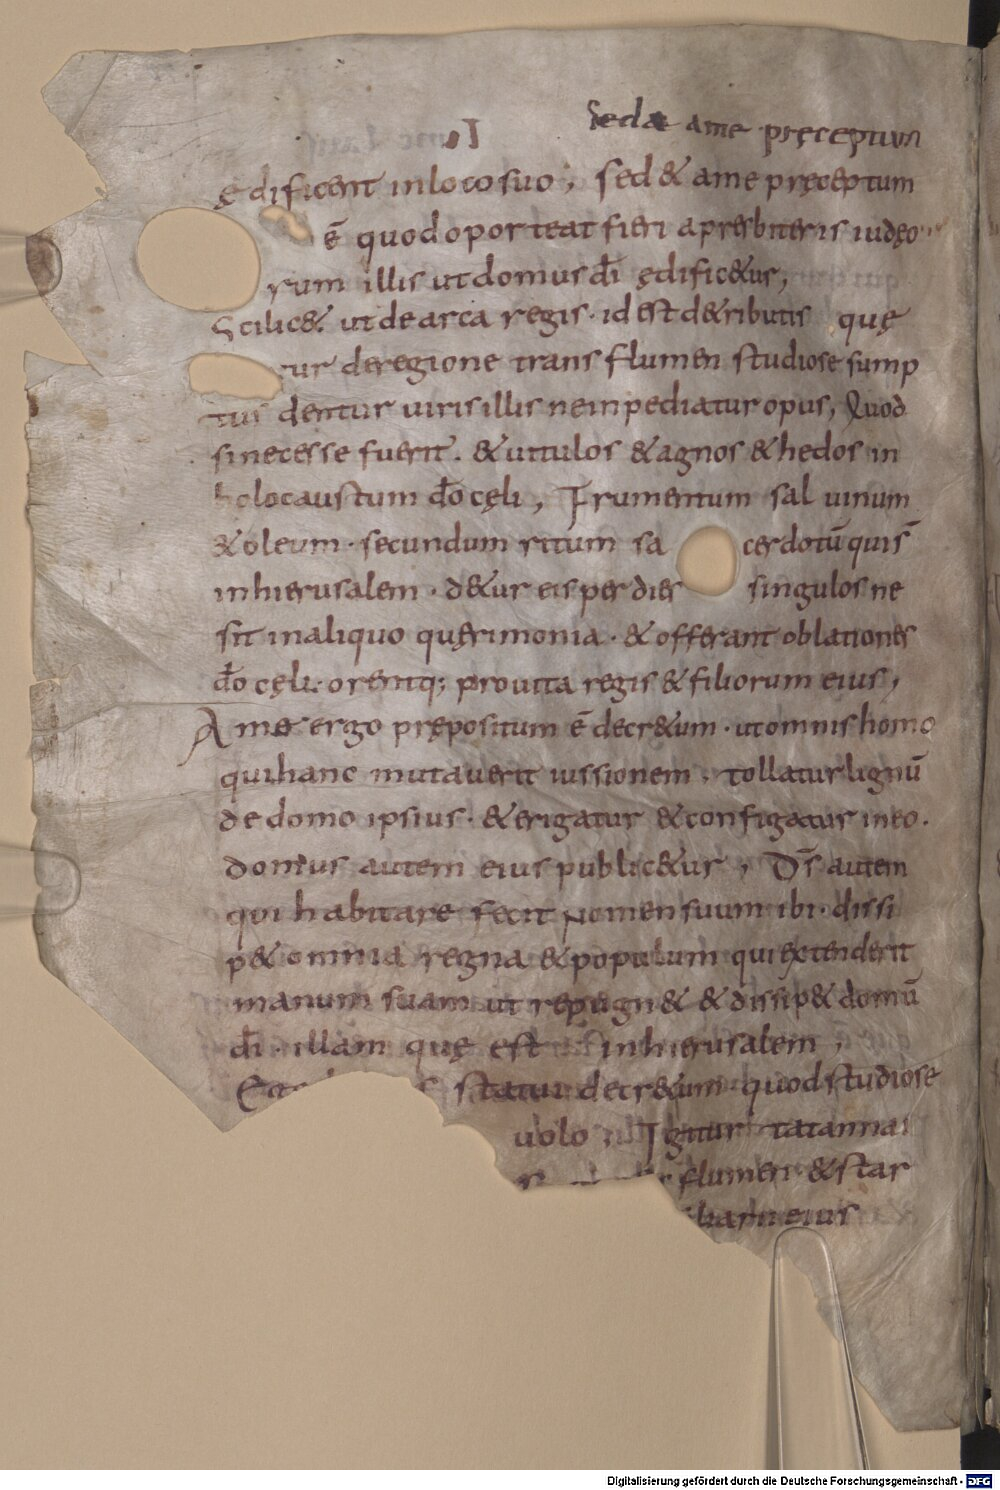 Seda ame pręceptum
ędificent inloco suo, sed & ame pręceptum
ē quod oporteat fieri apresbiteris iudęo
rum illis ut domus dī ędific&ur,
Scilic& ut de arca regis · id est d&ributis quę
tur deregione trans flumen studiose sump
tus dentur uiris illis neinpediatur opus, Quod
sinecesse fuerit . & uitulos & agnos & hedos in
holocaustum dō cęli, Frumentum sal uinum
& oleum · secundum ritum sa cerdotū quis̄
inhierusalem · d&ur eis per dies singulos ne
sit inaliquo quęrimonia · & offerant oblationes
dō cęli · orentq; pro uita regis & filiorum eius,
Ame ergo prępositum ē decr&um · ut omnis homo
qui hanc mutauerit iussionem, tollatur lignū
de domo ipsius · & erigatur & configatur ineo ·
domus autem eius public&ur, Ds̄ autem
qui habitare fecit nomen suum ibi · dissi
p& omnia regna & populum qui extenderit
manum suam ut repugn& & dissip& domū
dī · illam quę est inhierusalem,
statui decr&um quod studiose
uolo Igitur tatannai
flumen & star
eius
Digitalisierung gefördert durch die Deutsche Forschungsgemeinschaft - DFG